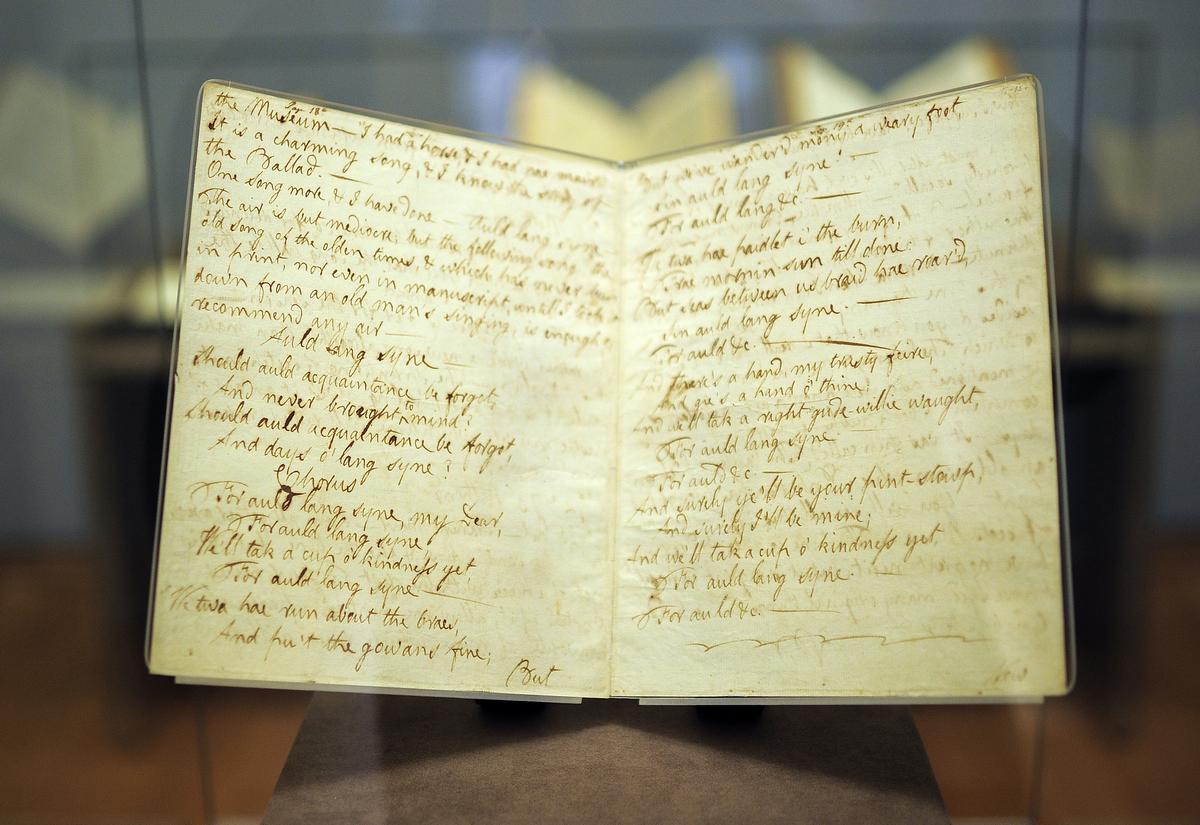 the Museum — "I had a horse, & I had nae mair"
It is a charming song, & I know the story of
the Ballad. —
One song more, & I have done — Auld lang syne
The air is but mediocre; but the following song, the
old song of the olden times, & which has never been
in print, nor even in manuscript, untill I took it
down from an old man's singing, is enough to
recommend any air —
Auld lang syne —
Should auld acquaintance be forgot,
And never brought to mind?
Should auld acquaintance be forgot,
And days o' lang syne?
Chorus
For auld lang syne, my Dear,
For auld lang syne,
We'll tak a cup o' kindness yet,
For auld lang syne —
We twa hae run about the braes,
And pu't the gowans fine;
But
But we've wander'd mony a weary foot,
Sin auld lang syne! —
For auld lang &c. —
We twa hae paidlet i' the burn,
Frae mornin sun till dine:
But seas between us braid hae roar'd,
Sin auld lang syne. —
For auld &c. —
And there's a hand, my trusty feire,
And gie's a hand o' thine;
And we'll tak a right gude willie waught,
For auld lang syne
For auld &c —
And surely ye'll be your pint-stowp,
And surely I'll be mine;
And we'll tak a cup o' kindness yet
For auld lang syne. —
For auld &c. —